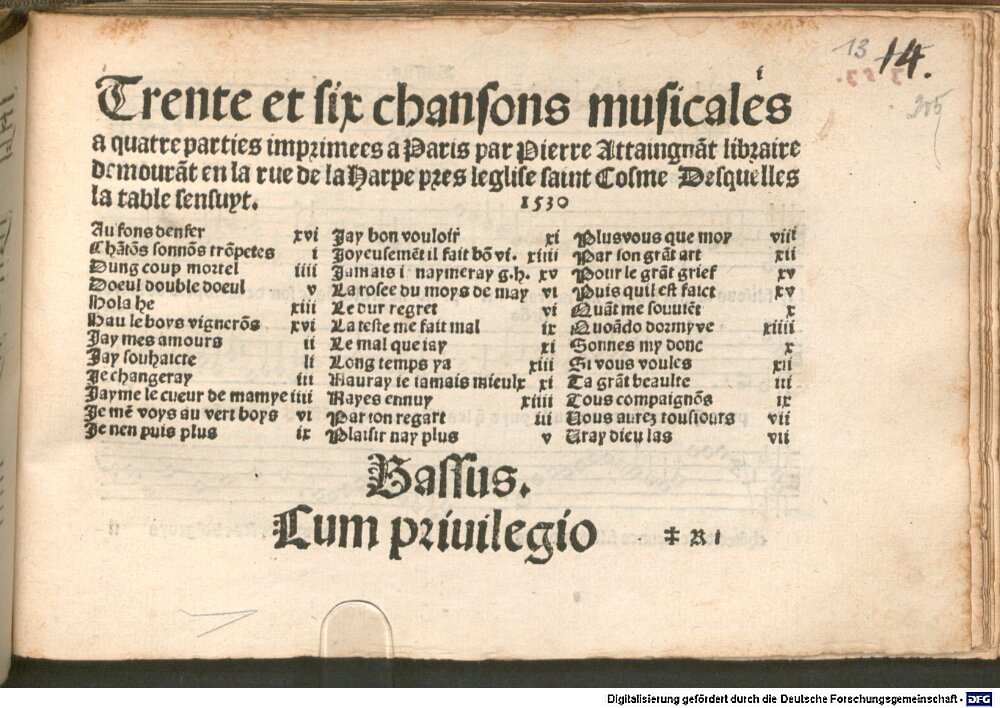 13 14.
205
i
Trente et six chansons musicales
a quatre parties imprimees a Paris par Pierre Attaingnãt libraire
demourãt en la rue de la Harpe pres leglise saint Cosme Desquelles
la table sensuyt. 1530
Au fons denfer xvi
Chãtõs sonnõs trõpetes i
Dung coup mortel iiii
Doeul double doeul v
Hola he xiii
Hau le boys vignerõs xvi
Jay mes amours ii
Jay souhaicte ii
Je changeray iii
Jayme le cueur de mamye iiii
Je mẽ voys au vert boys vi
Je nen puis plus ix
Jay bon vouloir xi
Joyeusemẽt il fait bõ vi. xiiii
Jamais i naymeray g.h. xv
La rosee du moys de may vi
Le dur regret vi
La teste me fait mal ix
Le mal que iay xi
Long temps ya xiii
Nauray ie iamais mieulx xi
Nayes ennuy xiiii
Par ton regart iii
Plaisir nay plus v
Plusvous que moy viii
Par ton grãt art xii
Pour le grãt grief xv
Puis quil est faict xv
Quãt me souuiẽt x
Quoãdo dormyve xiiii
Sonnes my donc x
Si vous voules xii
Ta grãt beaulte iii
Tous compaignõs ix
Vous aurez tousiours vii
Vray dieu las vii
Bassus.
Cum privilegio ‡ R i
Digitalisierung gefördert durch die Deutsche Forschungsgemeinschaft - DFG